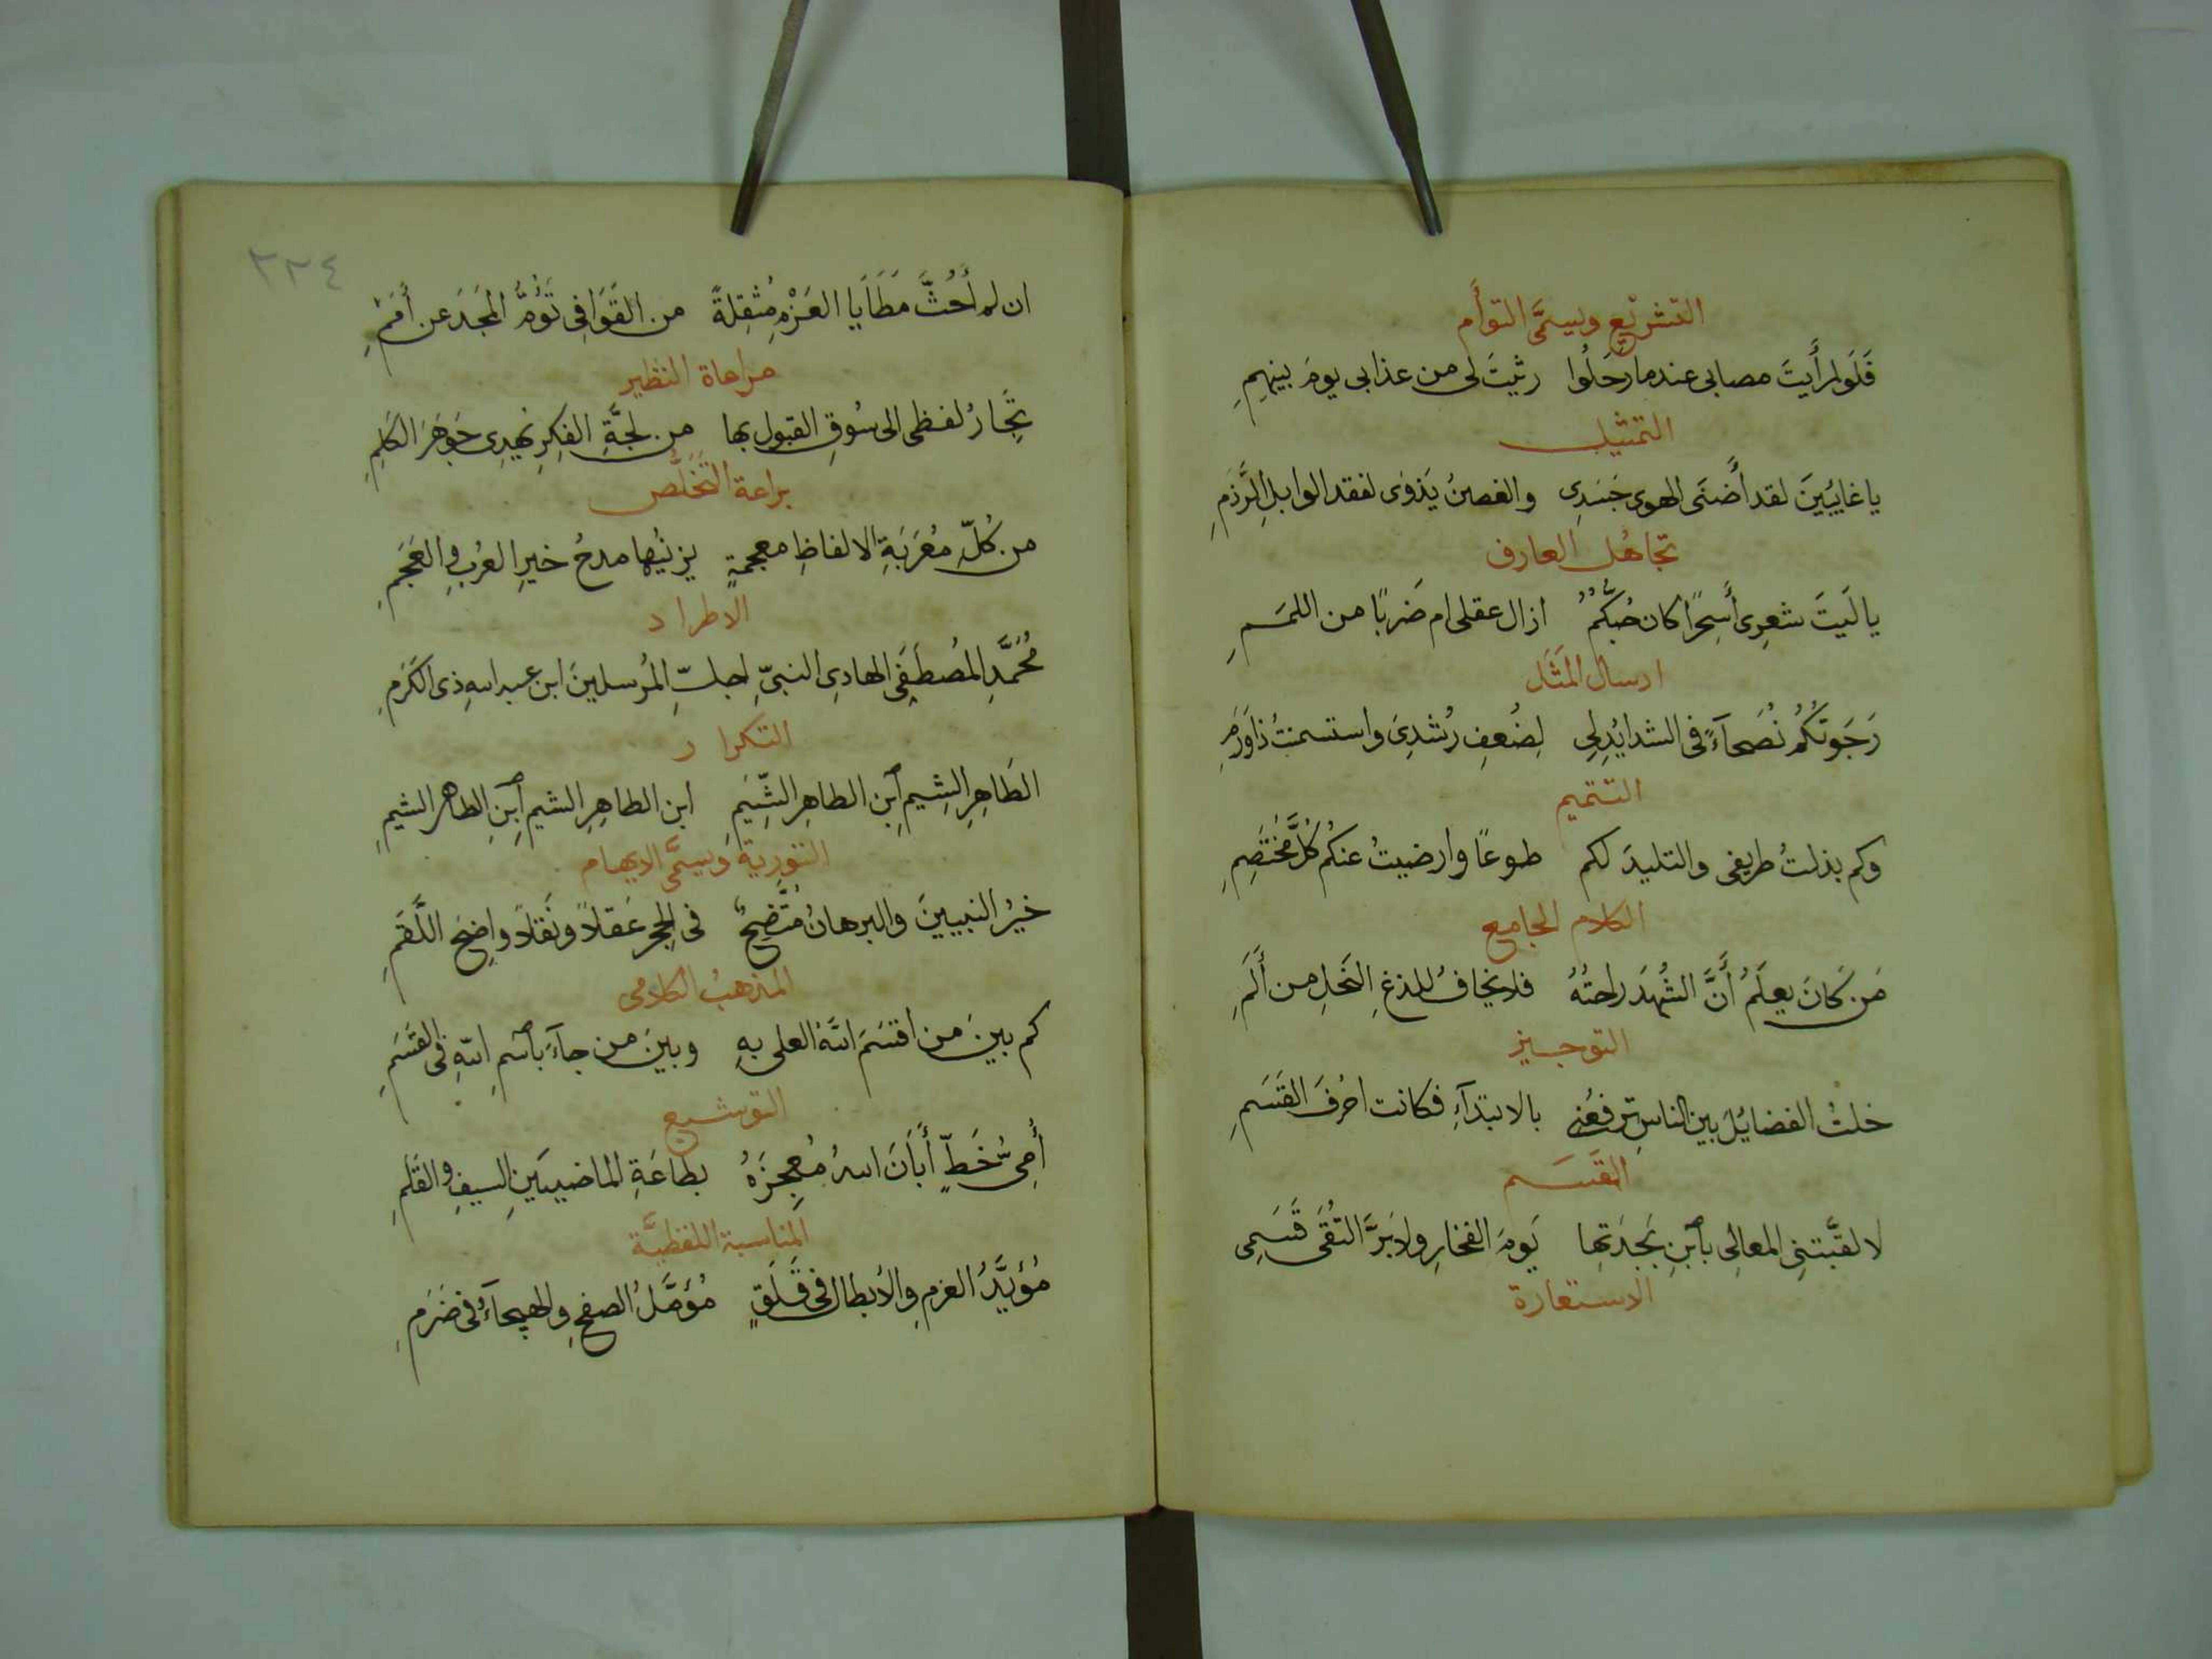 التشريع ويسمَّى التوأَم
فَلَو رأَيتَ مصابى عندما رَحَلُوا رثيتَ لى من عذابى يومَ بينهِمِ
التمثيل
يا غايبِينَ لقد أَضنَى الهوى جَسَدِى والغصنُ يَذوى لفقد الوابلِ الرَّذمِ
تجاهُل العارف
يا لَيتَ شعرِى أَسِحرًا كان حُبُّكُمُ ازال عقلى ام ضَربًا من اللمَمِ
ارسال المَثَل
رَجَوتُكُم نُصَحآءً فى الشدايُدِ لِى لِضُعفِ رُشدِى واستسمنتُ ذا وَرَمِ
التتميم
وكم بذلتُ طريفى والتليدَ لكم طوعًا وارضيتُ عنكُم كُلَّ مُختَصِمِ
الكلام الجامع
مَن كَانَ يعلَمُ أَنَّ الشُهدَ راحتُهُ فلا يخافُ للذغِ النَحلِ من أَلَمِ
التوجيز
خلتُ الفضايُلَ بين الناسِ ترفعُنى بالابتدآءِ فكانت احرُفَ القَسَمِ
القَسَم
لا لقَّبتنِى المعالِى بٱبنِ بَجدَتِها يَومَ الفخارِ ولا بَرَّ التُقَى قَسَمِى
الاستعارة
٢٢٤
ان لم أَحُثَّ مَطَايا العَزْمِ مُثقِلةً من القَوَافِى تَؤُمُّ المَجَدَ عن أَمَمِ
مراعاة النظير
تِجَارُ لفظى الى سُوقِ القبولِ بها من لجَّةِ الفِكرِ تهدِى جَوهَرَ الكَلِمِ
براعة التَخَلُّص
من كُلّ مُعَربَةِ الالفاظِ معجمةٍ يزينُها مدحُ خيرِ العُربِ والعَجَمِ
الاطراد
مُحَمَّدِ المُصطَفَى الهادِى النبىِّ اجلِّ المُرسلينَ ابن عبد اللهِ ذى الكَرَمِ
التكرار
الطَاهِرِ الشِيمِ ٱبنِ الطاهِرِ الشِّيَمِ ابن الطاهِرِ الشيم ٱبنِ الطاهر الشيمِ
التورية ويسمَّى الايهام
خيرُ النبيينَ والبرهانُ مُتَّضِحٌ فى الحِجرِ عَقلاً ونَقلاً واضِح اللَّقَمِ
المذهبُ الكلامى
كم بينَ من اقسَمَ اللَّهُ العلى بهِ وبينَ من جآءَ بٱسمِ اللهِ فى القَسَمِ
التوشيع
أُمِىُّ خَطٍّ أَبَانَ اللهُ مُعجِزَهُ بطاعَةِ الماضيينِ السيفِ والقَلَمِ
المناسبة اللفظيَّة
مُؤيَّدُ العزمِ والأبطال فى قَلَقٍ مُؤمَّلُ الصفحِ والهيجآءُ فى ضَرَمِ